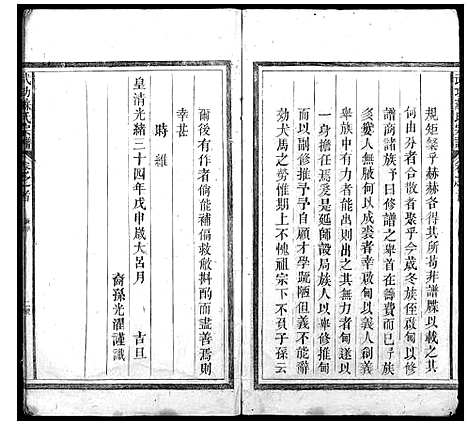 規矩棨乎赫赫各得其所曷非譜牒以載之其
何由分者合散者聚乎今歲冬族侄啟甸以修
譜商諸族予曰修譜之舉首在籌費而已乎族
多愛人無腋何以成裘者幸啟甸以義人創義
舉族中有力者能出則出其無力者甸遂以
一身擔任焉爰是延師設局族人以率修推甸
而以副修推予予自顧才學疏陋但義不能辭
効犬馬之勞惟期上不愧祖宗下不負子孫云
爾後有作者倘能補偏救敝斟酌而盡善焉則
幸甚
時維
皇清光緒三十四年戊申歲大呂月 吉旦
裔孫光濯謹識
武功蘇氏宗譜
卷之首